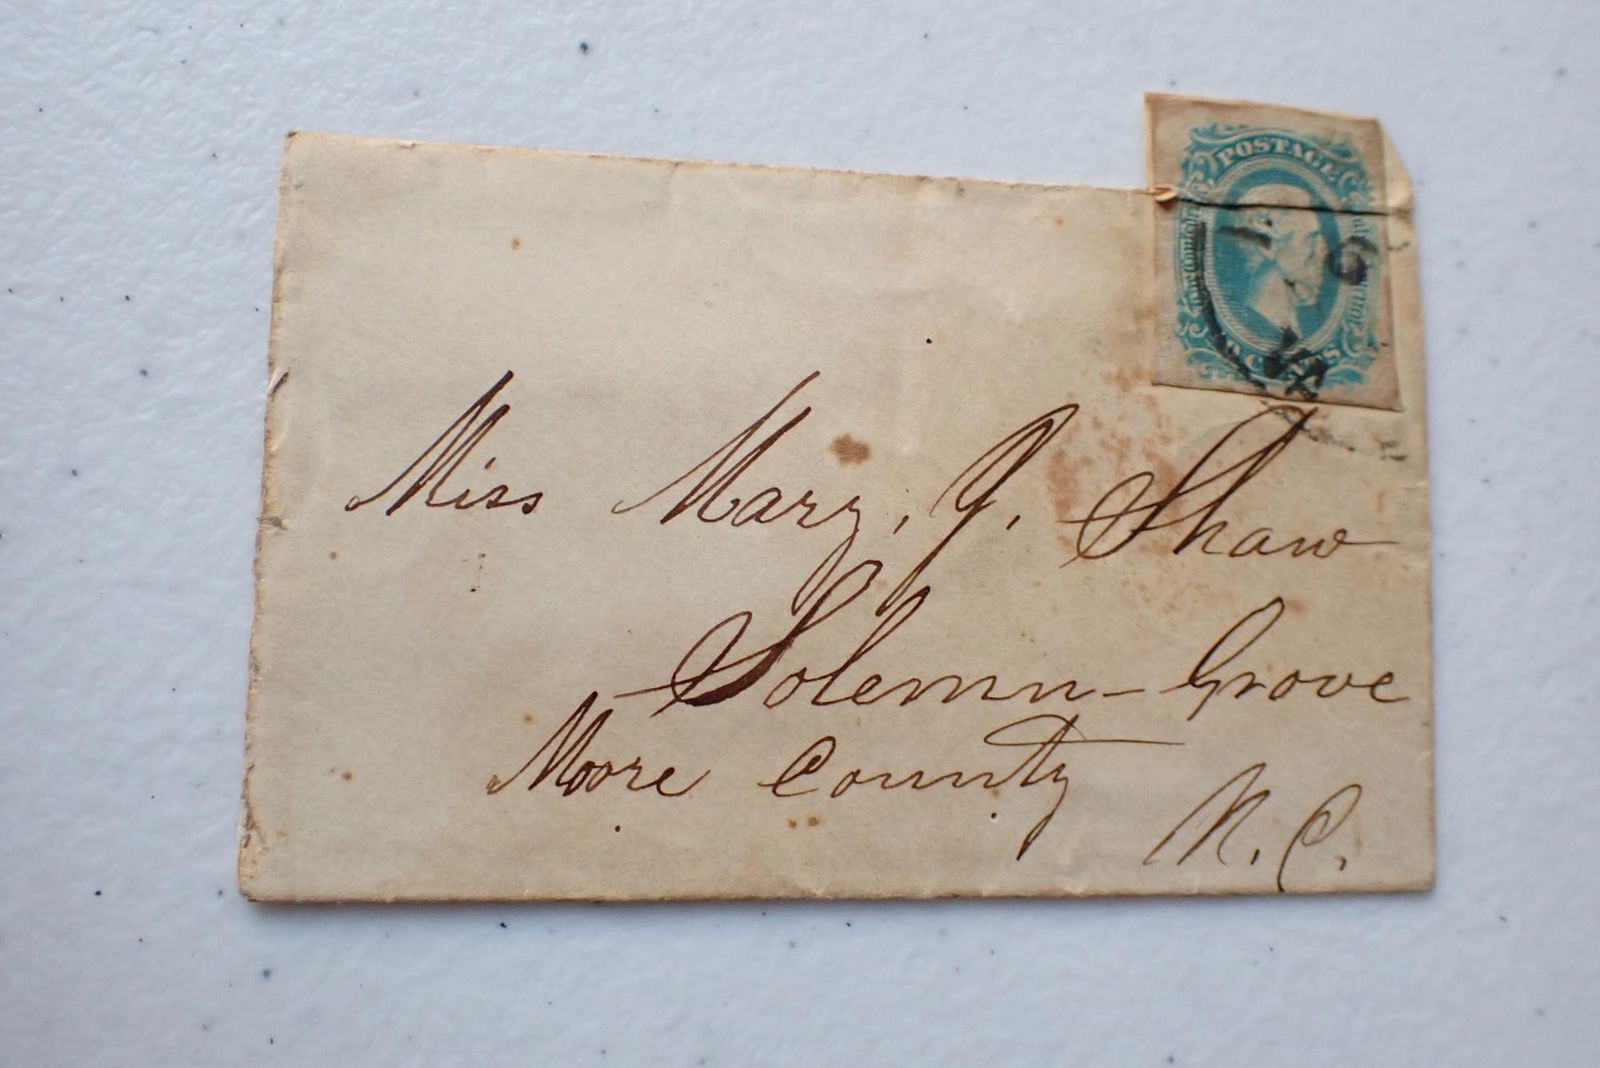 POSTAGE
CENTS
Miss Mary, J. Shaw
Solemn-Grove
Moore County
N. C.